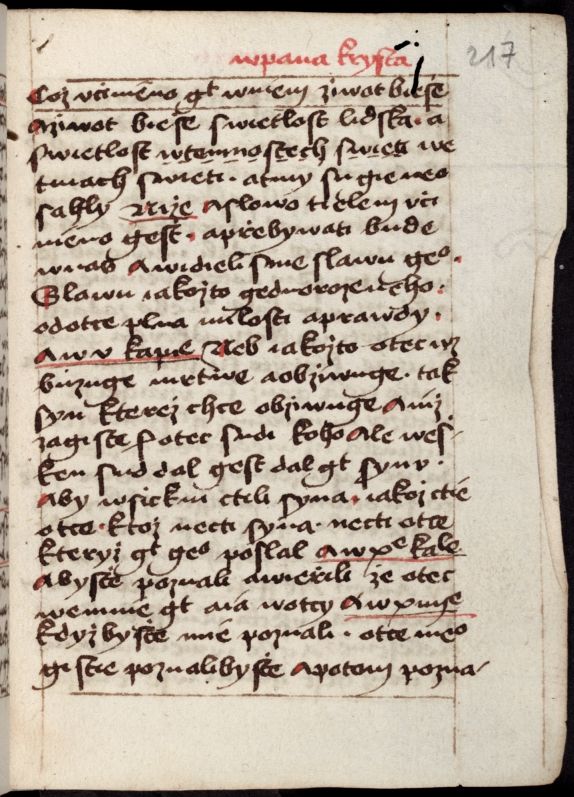 wpana krysta
217
Coz vcineno gt wniem ziwot biesse
Aziwot biesse swietlost lidska · a
swietlost wtemnostech swieti we
tmach swieti · atmy su gie neo
sahly Nize Aslowo tielem vci
neno gest · aprzebywati bude
wnas Awidieli sme slawu geo ·
Slawu iakozto gednorozeneho ·
odotce plna milosti aprawdy ·
Aw v kapie Neb iakozto otec wz
buzuge mrtwe aobziwuge · tak
syn kterez chce obziwuge Aniz
zagiste otec sudi koho Ale wes-
ken sud dal gest dal gt synu ·
Aby wsickni ctili syna · iakoz ctie
otce · ktoz necti syna · necti otce
kteryz gt geo poslal Aw xe kale
Abyste poznali awierzili ze otec
wemne gt aia wotcy Aw xiiije
kdyzbyste mie poznali · otce meo
giste poznalibyste Apotom pozna-